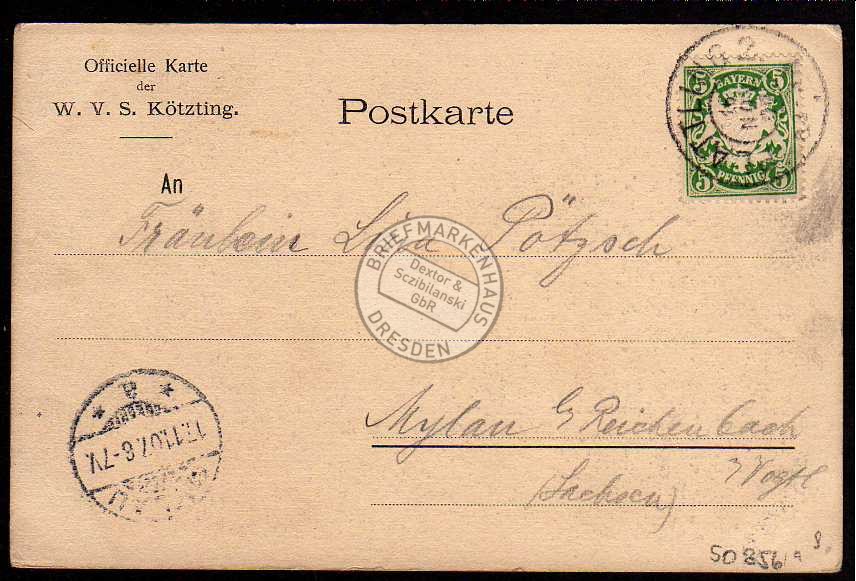 Officielle Karte
der
W. V. S. Kötzting.
Postkarte
5 BAYERN 5
5 PFENNIG 5
An
Fräulein Lida Pötzsch
BRIEFMARKENHAUS
Dextor &
Sczibilanski
GbR
DRESDEN
Mylau b/ Reichenbach
Vogtl
(Sachsen)
17.11.07. 6-7V.